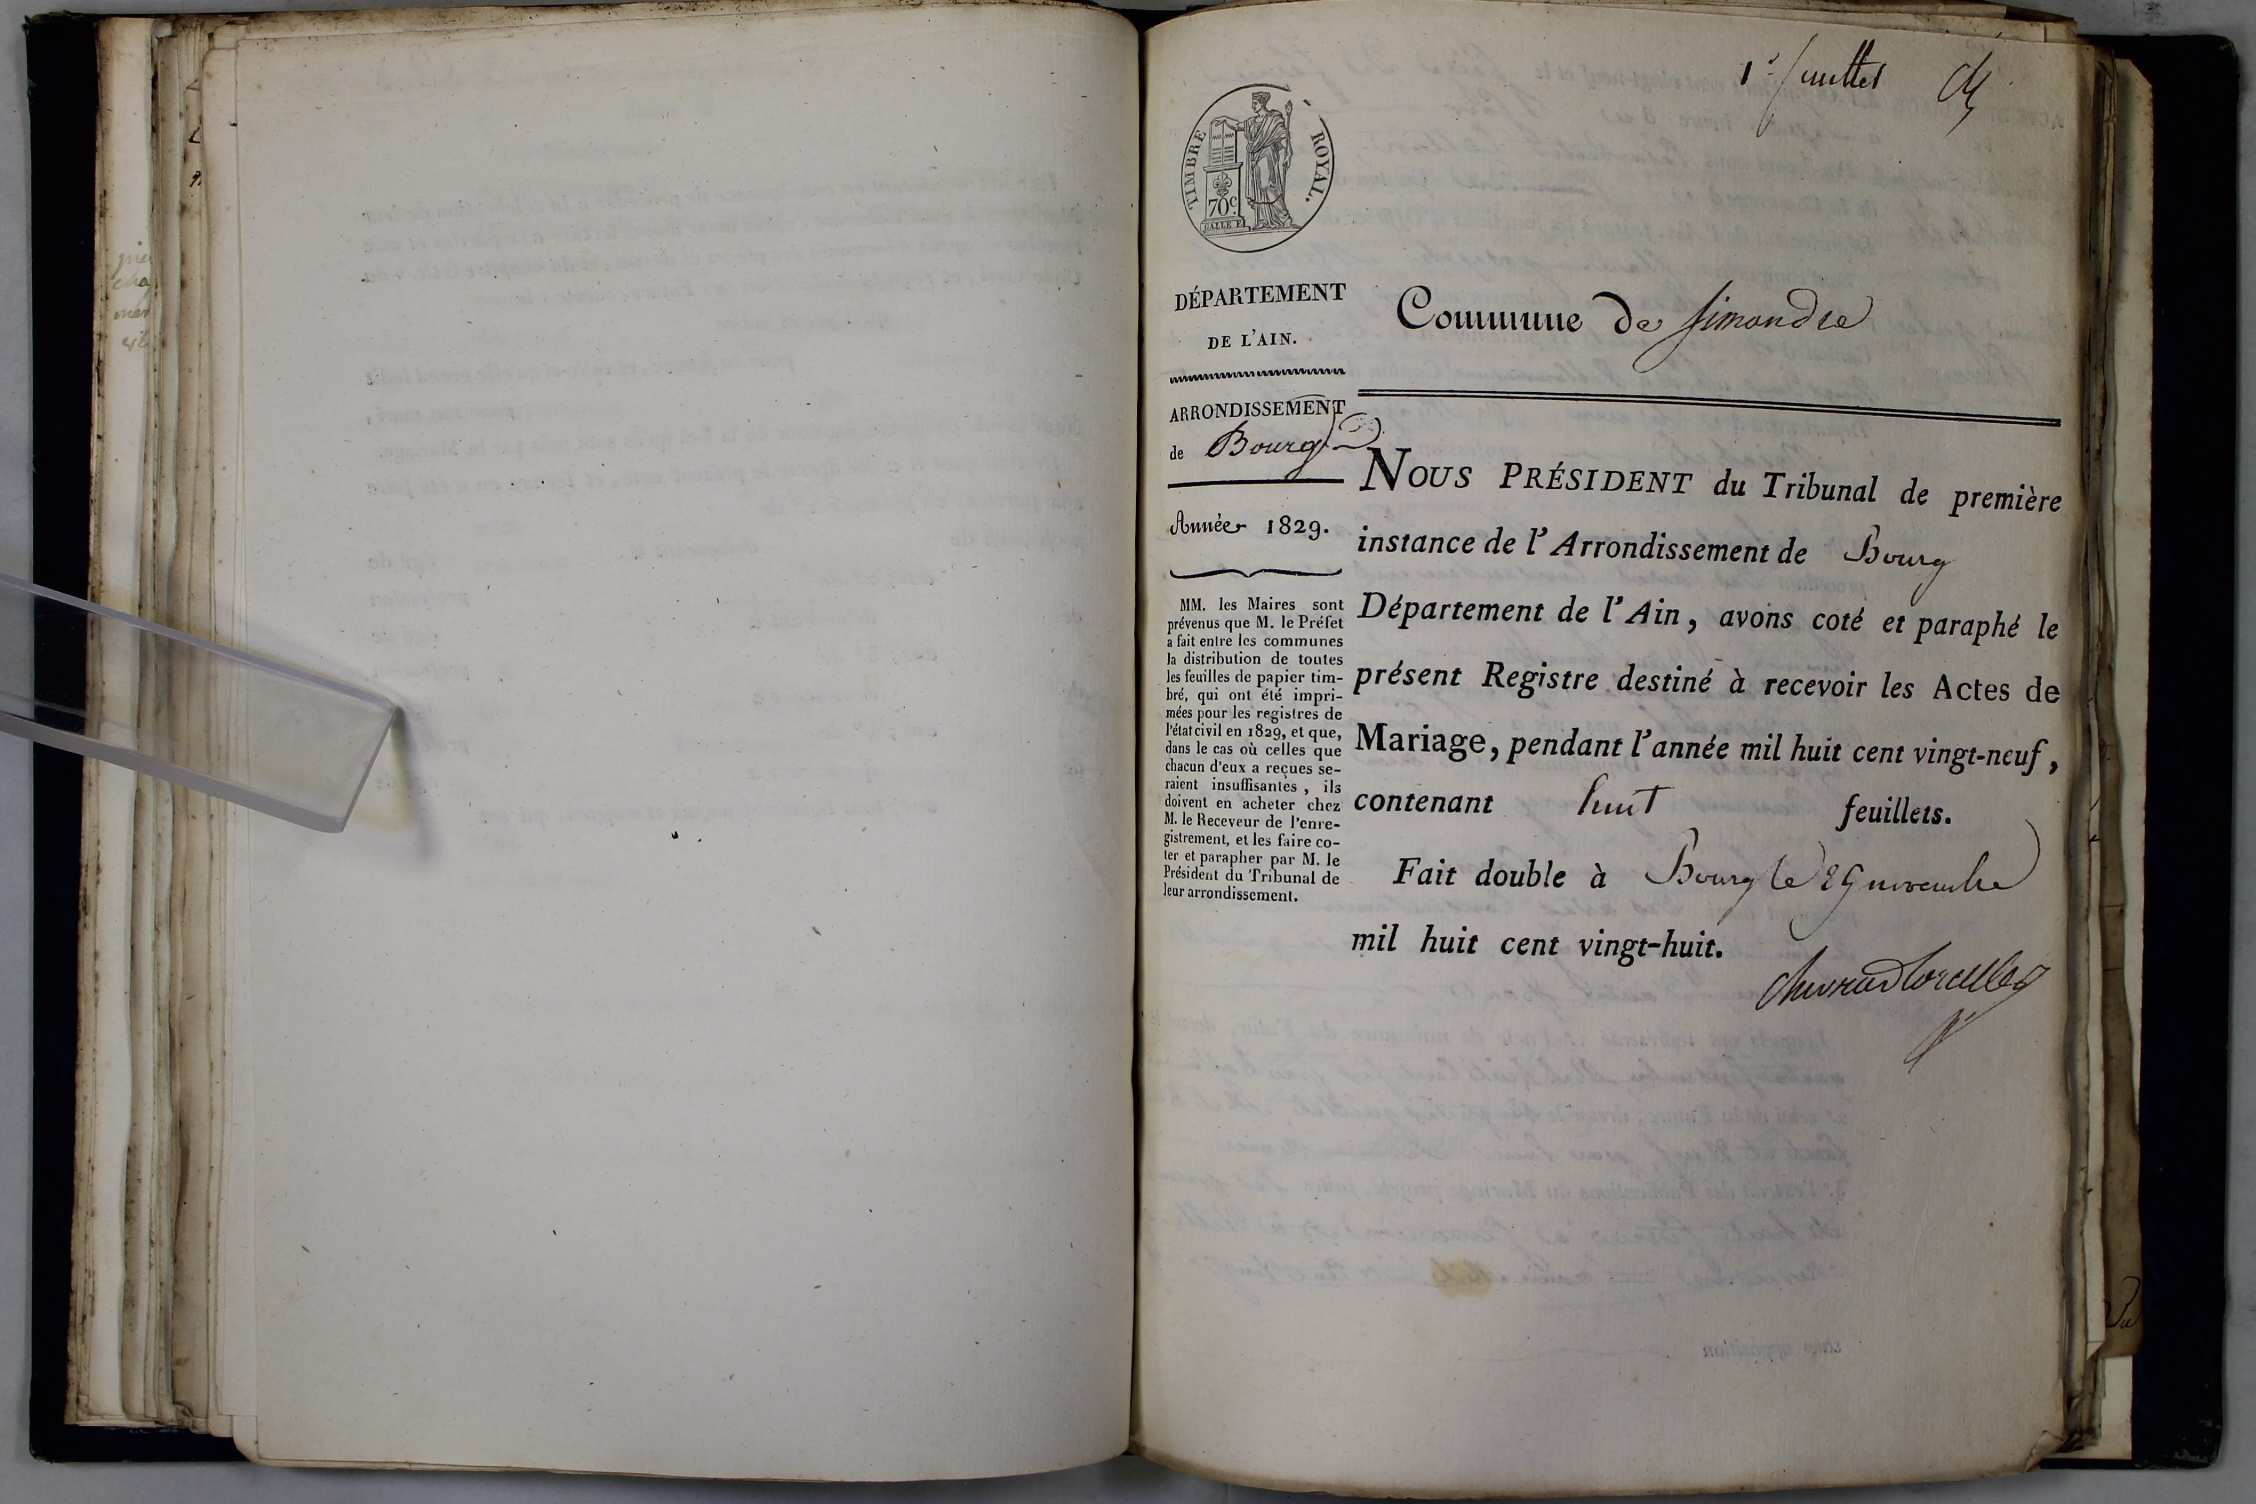 1er feuillet Ch
TIMBRE ROYAL.
70c
DALLE F.
DÉPARTEMENT
DE L'AIN.
ARRONDISSEMENT
de Bourg
Année 1829.
MM. les Maires sont
prévenus que M. le Préfet
a fait entre les communes
la distribution de toutes
les feuilles de papier tim-
bré, qui ont été impri-
mées pour les registres de
l'état civil en 1829, et que,
dans le cas où celles que
chacun d'eux a reçues se-
raient insuffisantes, ils
doivent en acheter chez
M. le Receveur de l'enre-
gistrement, et les faire co-
ter et parapher par M. le
Président du Tribunal de
leur arrondissement.
Commune de Simandre
NOUS PRÉSIDENT du Tribunal de première
instance de l'Arrondissement de Bourg
Département de l'Ain, avons coté et paraphé le
présent Registre destiné à recevoir les Actes de
Mariage, pendant l'année mil huit cent vingt-neuf,
contenant huit feuillets.
Fait double à Bourg le 29 novembre
mil huit cent vingt-huit.